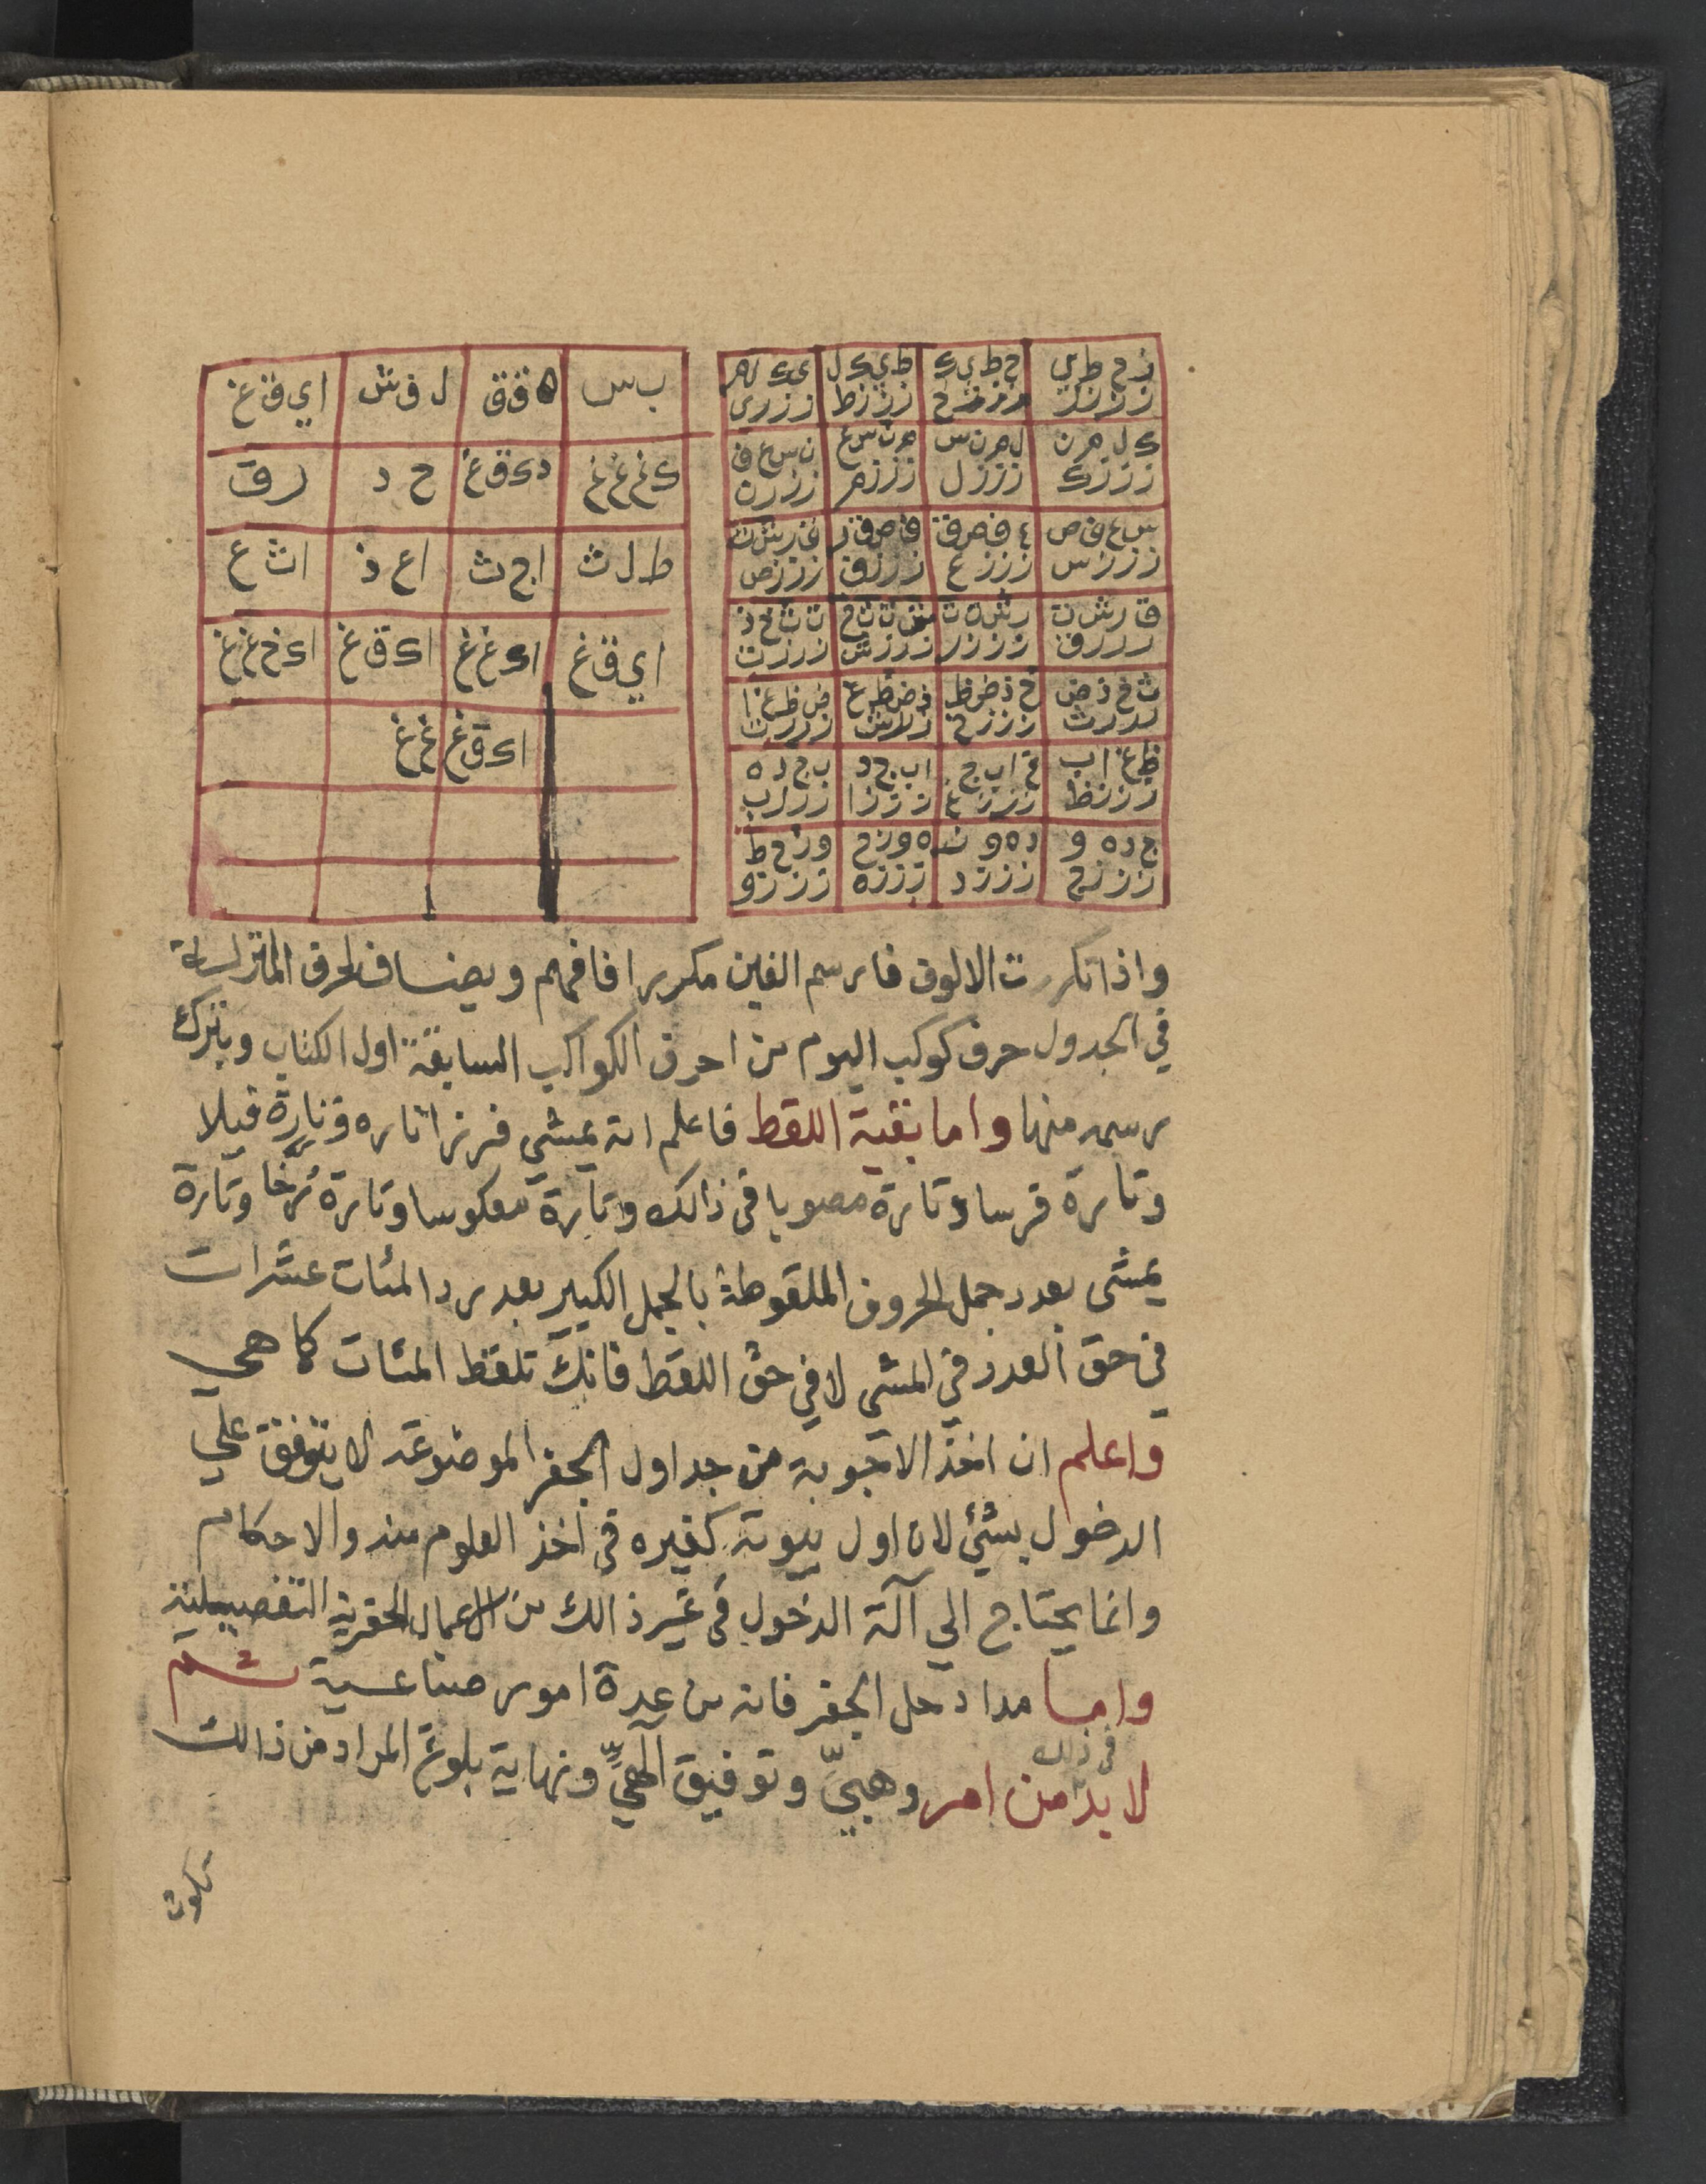 ز ح ط ي
ز ز ز ز
ح ط ي ك
ز ز ز ح
ط ي ك ل
ز ز ز ط
ي ك ل م
ز ز ز ي
ك ل م ن
ز ز ز ك
ل م ن س
ز ز ز ل
م ن س ع
ز ز ز م
ن س ع ف
ز ز ز ن
س ع ف ص
ز ز ز س
ع ف ص ق
ز ز ز ع
ف ص ق ر
ز ز ز ف
ز ز ز ص
ق ر ش ت
ز ز ز ق
ر ش ت ث
ز ز ز ر
ش ت ث خ
ز ز ز ش
ت ث خ ذ
ز ز ز ت
ث خ ذ ض
ز ز ز ث
خ ذ ض ظ
ز ز ز خ
ذ ض ظ غ
ض ظ غ ا
ظ غ ا ب
ز ز ز ظ
غ ا ب ج
ز ز ز غ
ا ب ج د
ز ز ز ا
ب ج د ه
ز ز ز ب
ج د ه و
ز ز ز ج
د ه و ز
ز ز ز د
ه و ز ح
ز ز ز ه
و ز ح ط
ز ز ز و
ب س
ه ق ق
ل ق ش
ا ي ق غ
ك غ غ غ
د ك ق غ
ح د
ر ق
ط ل ث
ا ج ث
ا ع ذ
ا ث ع
ا ي ق غ
ا ك غ غ
ا ك ق غ
ا ك خ غ غ
ا ك ق غ غ غ
واذا تكررت الالوف فارسم الغين مكررا فافهم ويضاف لحرف المنزلة
في الجدول حرف كوكب اليوم من احرف الكواكب السابقة اول الكتاب ويترك
رسمه منها واما بقية اللقط فاعلم انه يمشي فرزانا تارة وتارة فيلا
وتارة فرسا وتارة مصوبا في ذالك وتارة معكوسا وتارة رخا وتارة
يمشى بعدد جمل الحروف الملقوطة بالجمل الكبير بعد رد المئات عشرات
في حق العدد في المشي لا في حق اللقط فانك تلقط المئات كما هي
واعلم ان اخذ الاجوبة من جداول الجفر الموضوعة لا يتوقف علي
الدخول بشئ لان اول بيوته كغيره في اخذ العلوم منه والاحكام
وانما يحتاج الي آلة الدخول في غير ذالك من الاعمال الجفرية التفصيلية
واما مداد حل الجفر فانه من عدة امور صناعية ثم
لا بد في ذلك من امر وهبيّ وتوفيق الٓهيٍّ ونهاية بلوغ المراد من ذالك
تكون